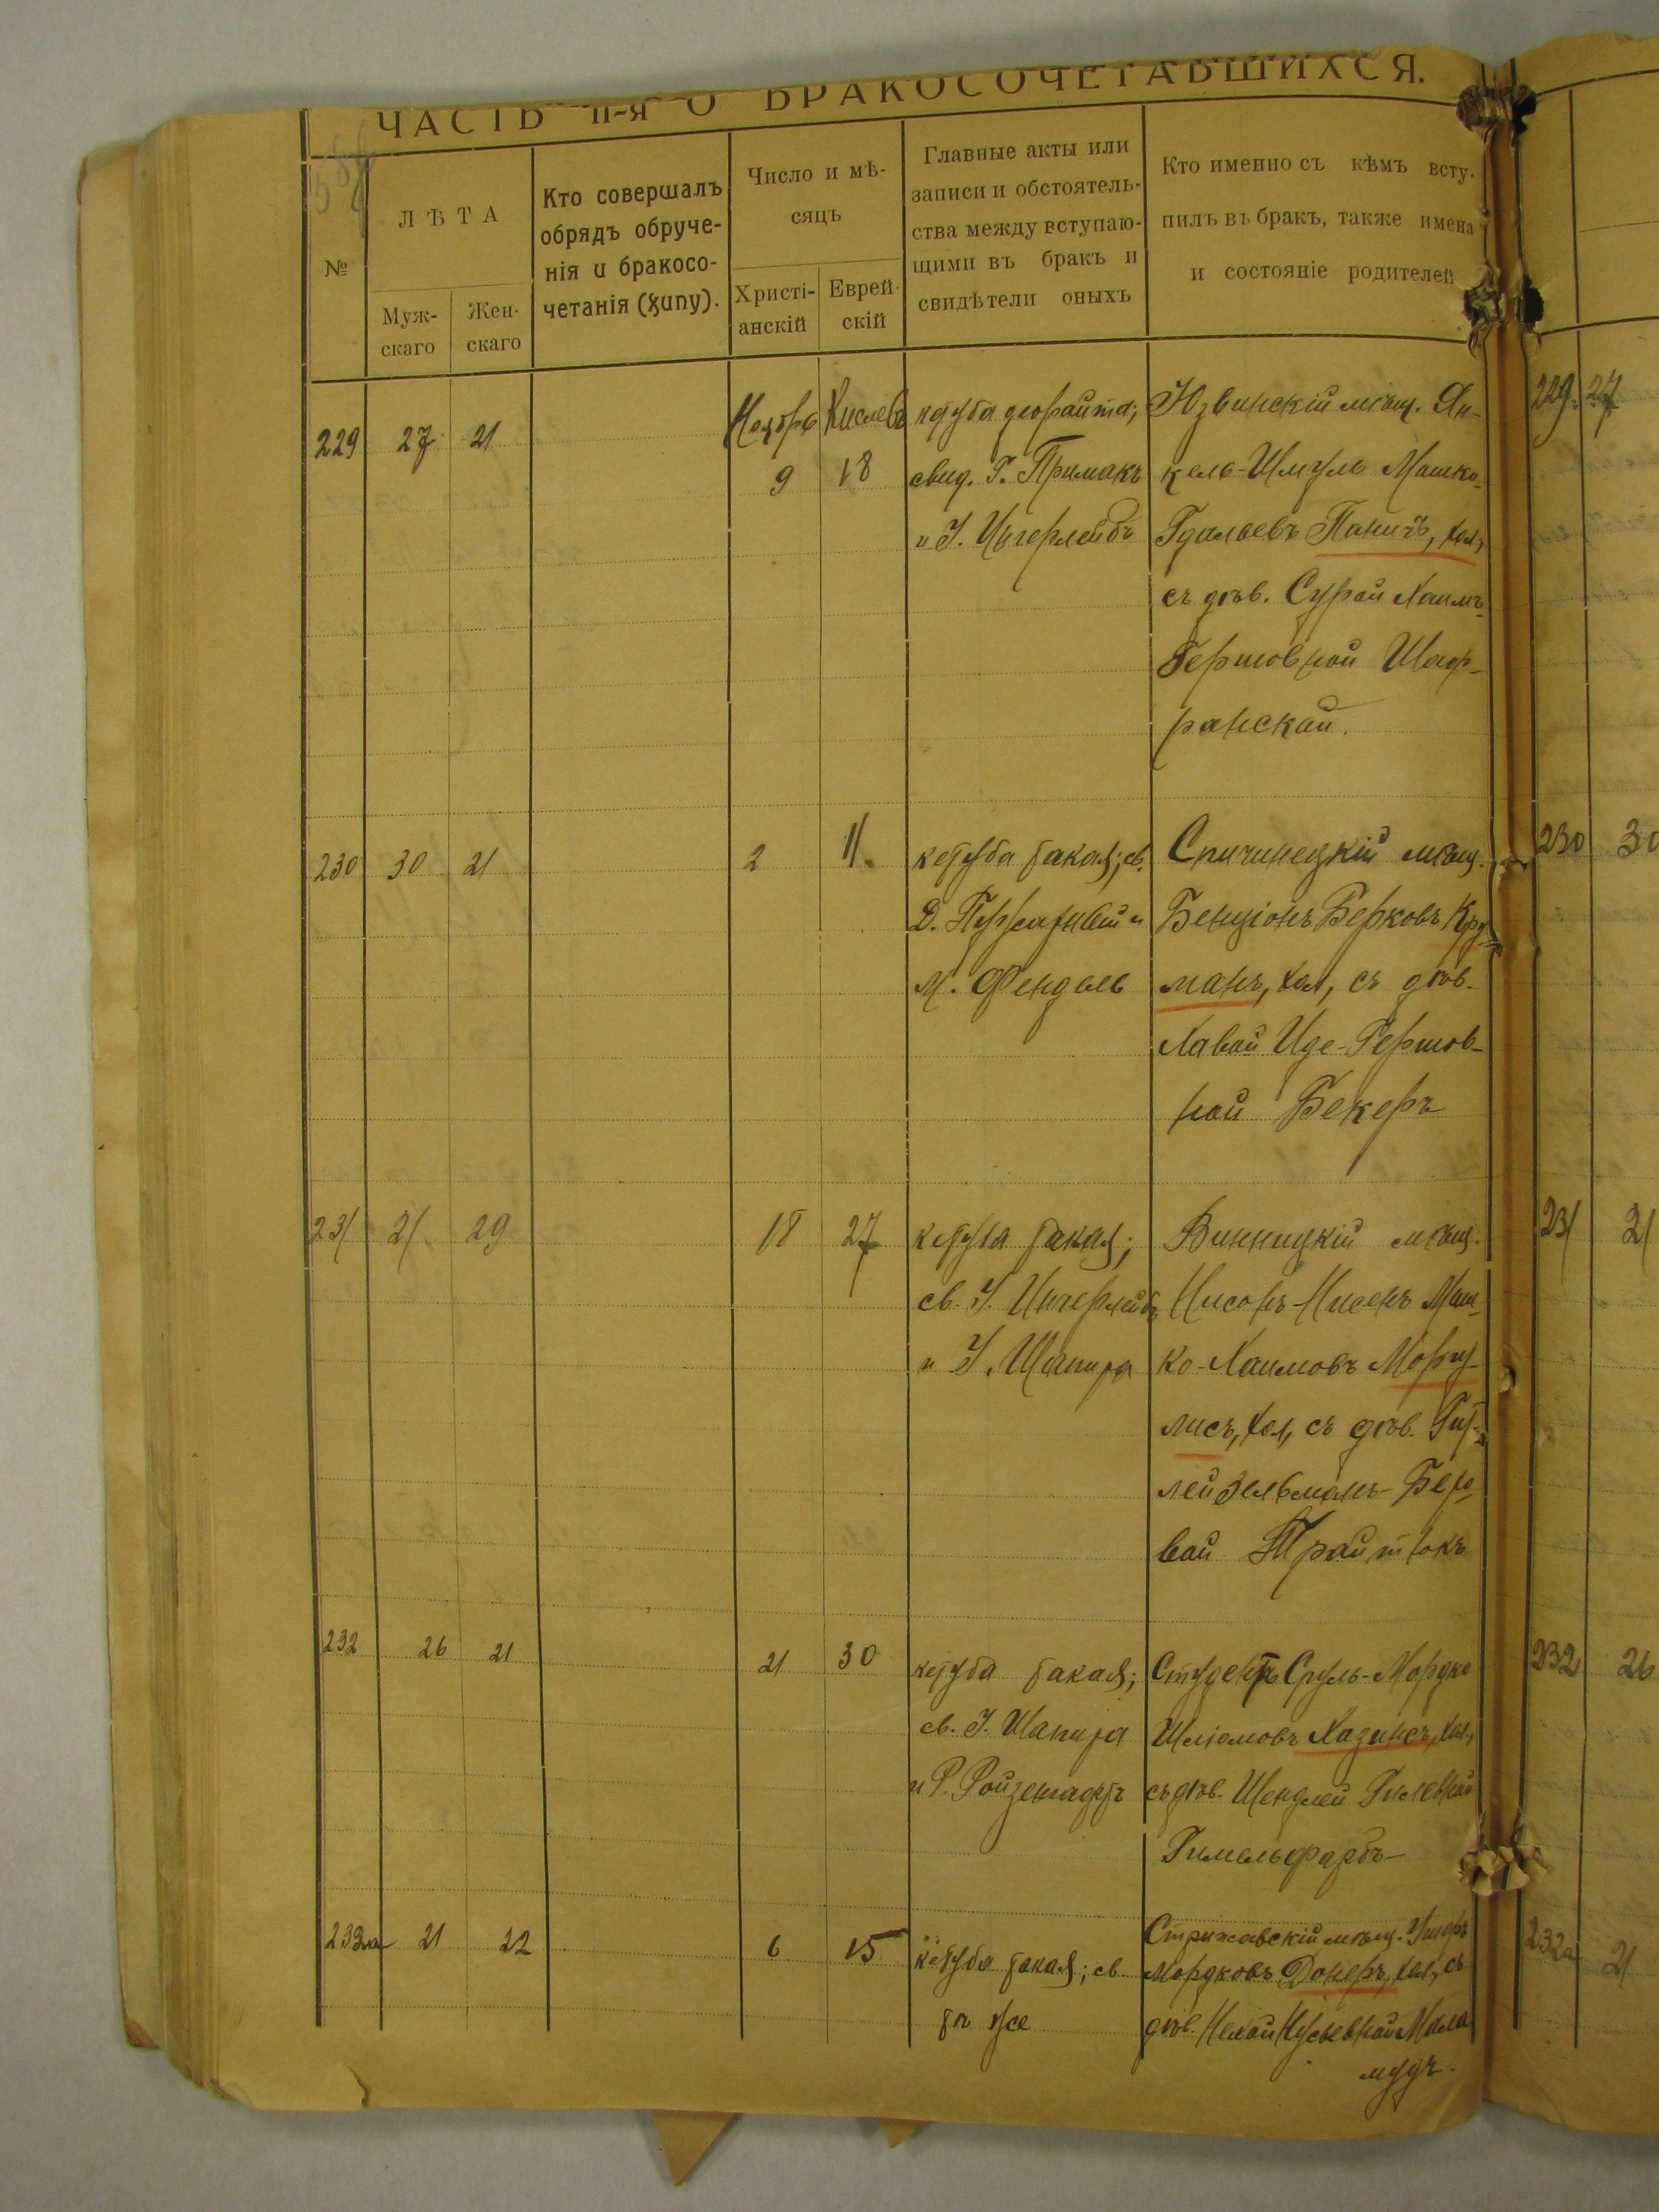 ЧАСТЬ II-я О БРАКОСОЧЕТАВШИХСЯ.
№
ЛѢТА
Муж-
скаго
Жен-
скаго
Кто совершалъ
обрядъ обруче-
нія и бракосо-
четанія (хупу).
Число и мѣ-
сяцъ
Христі-
анскій
Еврей-
скій
Главные акты или
записи и обстоятель-
ства между вступаю-
щими въ бракъ и
свидѣтели оныхъ
Кто именно съ кѣмъ всту-
пилъ въ бракъ, также имена
и состояніе родителей
229 27 21
Ноябрь Кислевъ
9 18
кетуба деорайта;
свид. Г. Примакъ
и І. Цигерлейбъ
Юзвинскій мѣщ. Ян-
кель-Шмуль Машко-
Гдальевъ Паничъ, хол,
съ дѣв. Сурай Хаимъ-
Гершовной Шаф-
ранской.
230 30 21
2 11
кетуба такая; св.
Д. и
М. Фендель
Спичинецкій мѣщ.
Бенціонъ Берковъ Кру-
манъ, хол, съ дѣв.
Хавой Иде-Гершов-
ной Бекеръ
231 21 29
18 27
кетуба такая;
св. І. Цигерлейбъ
и І. Шапира
Винницкій мѣщ.
Нисонъ-Нисенъ Маш-
ко-Хаимовъ Мору-
лисъ, хол, съ дѣв. Гит-
лей Зельманъ-Бер-
вой
232 26 21
21 30
кетуба такая;
св. І. Шапира
и Р.
Студентъ Сруль-Мордко
Шліомовъ Хазинсъ, хол,
съ дѣв. Шендлей Гилевной
Гимельфарбъ
232а 21 22
6 15
кетуба такая; св.
тѣ же
Стрижавскій мѣщ. Ушеръ
Мордковъ Донеръ, хол, съ
дѣв. Нехой Нусьевной Мала
мудъ.
229 27
230 30
231 21
232 26
232а 21